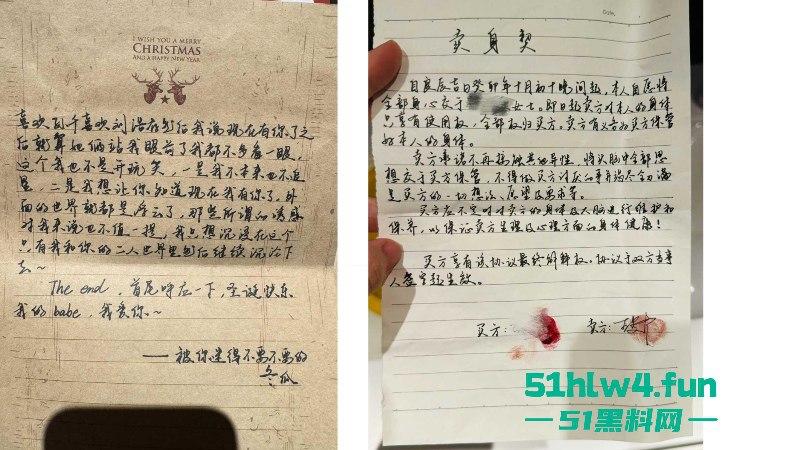 I WISH YOU A MERRY
CHRISTMAS
AND A HAPPY NEW YEAR
喜欢刘浩存包后我说现在有你了之
后就算她俩站我眼前了我都不多看一眼,
这个我也不是开玩笑,一是我本来也不追
星,二是我想让你知道现在我有你了,外
面的世界就都是浮云了,那些所谓的诱惑
对我来说也不值一提,我只想沉浸在这个
只有我和你的二人世界里然后继续沉沦下
去~
The end,首尾呼应一下,圣诞快乐
我的babe,我爱你~
——被你迷得不要不要的
冬瓜
Date.
卖身契
自良辰吉日癸卯年十月初十晚间起,本人自愿将
全部身心卖于 女士。即日起卖方对本人的身体
只享有使用权,全部权归买方。卖方有义务为买方保管
好本人的身体。
卖方承诺不再接触其他异性,将头脑中全部思
想交于买方保管,不得做买方讨厌的事并竭尽全力满
足买方的一切想法、愿望及要求等。
买方应不定时对卖方的身体及大脑进行维护和
保养,以保证卖方生理及心理方面的身体健康!
买方享有该协议最终解释权。协议于双方当事
人签字起生效。
买方: 卖方:
51hlw4.fun
—51黑料网—